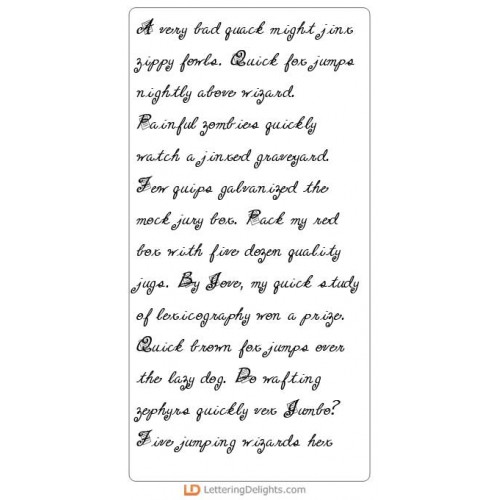 A very bad quack might jinx
zippy fowls. Quick fox jumps
nightly above wizard.
Painful zombies quickly
watch a jinxed graveyard.
Few quips galvanized the
mock jury box. Pack my red
box with five dozen quality
jugs. By Jove, my quick study
of lexicography won a prize.
Quick brown fox jumps over
the lazy dog. Do wafting
zephyrs quickly vex Jumbo?
Five jumping wizards hex
LD LetteringDelights.com